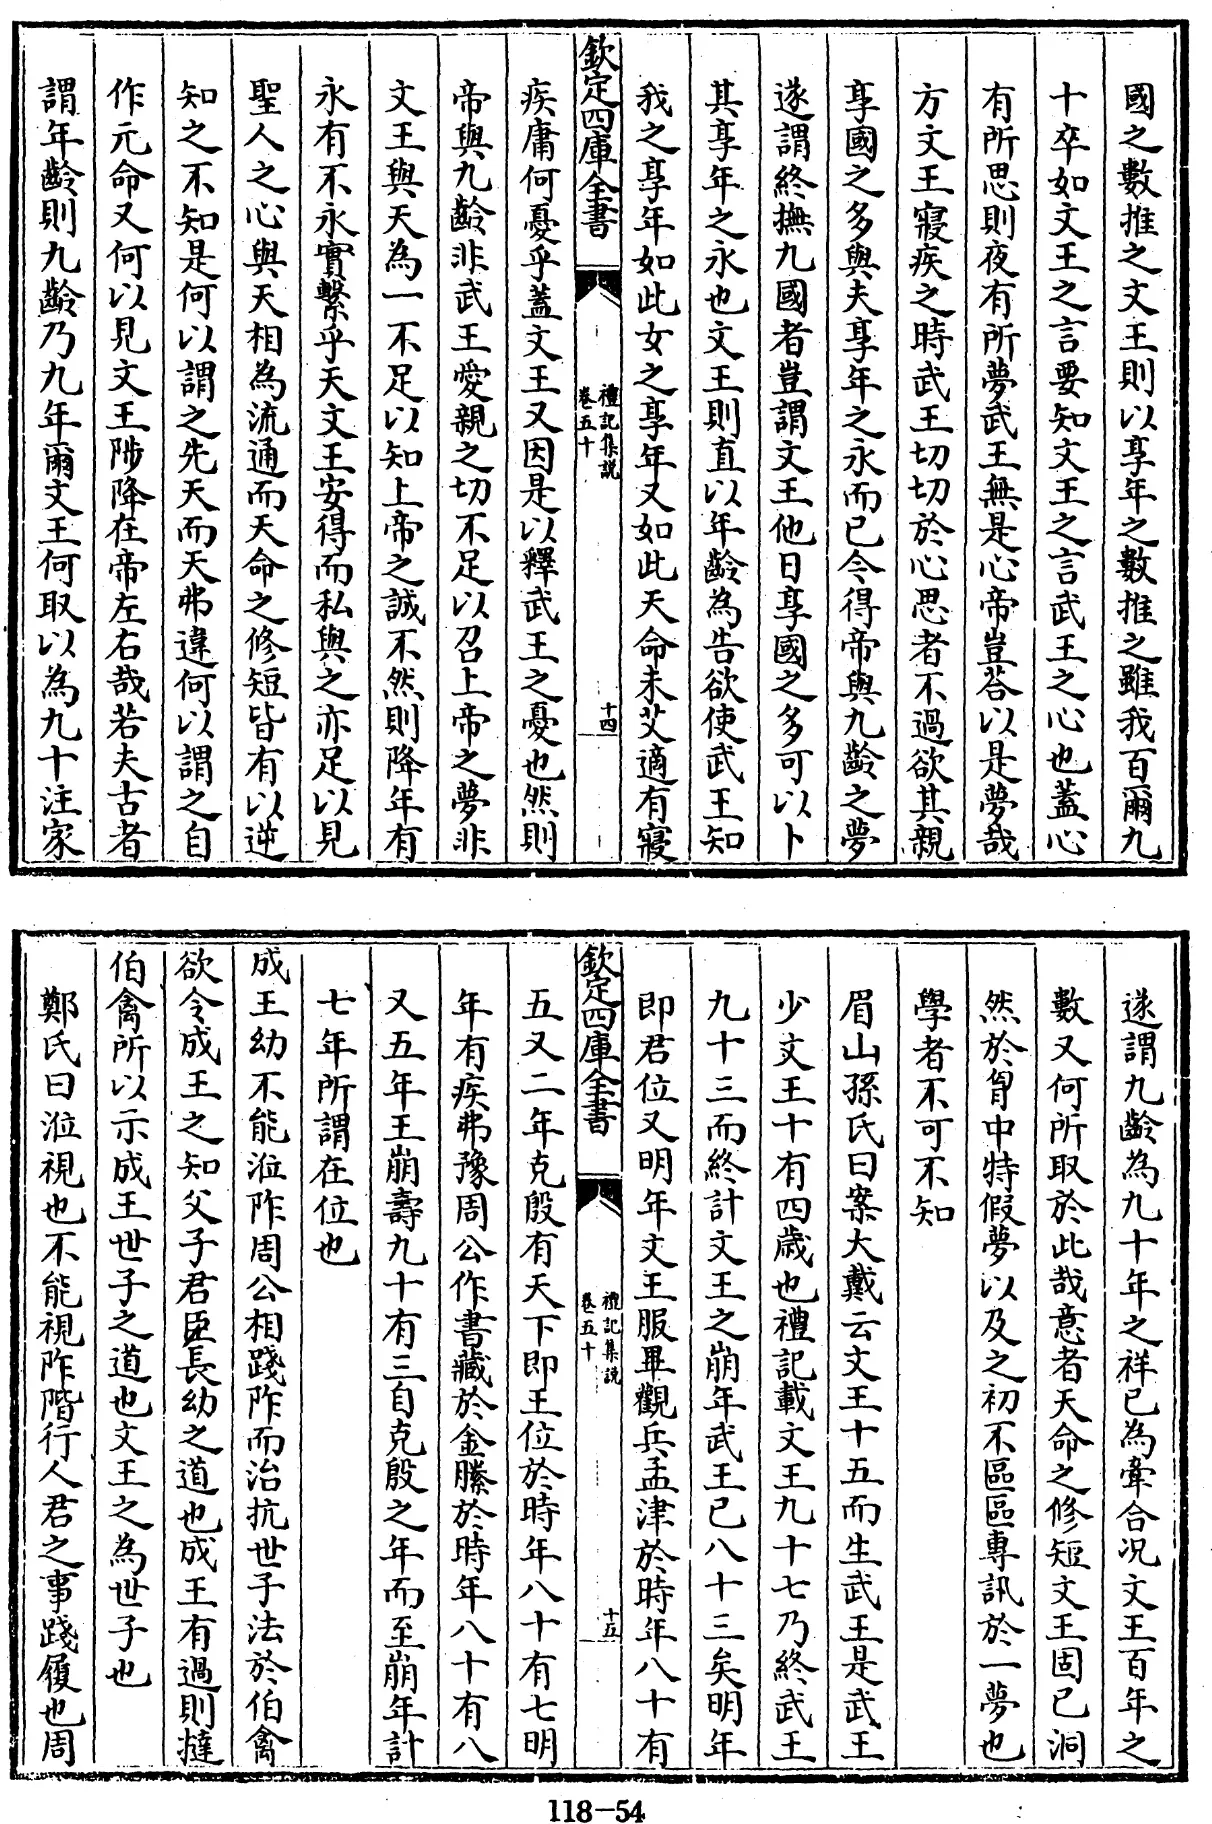 國之數推之文王則以享年之數推之雖我百爾九
十卒如文王之言要知文王之言武王之心也蓋心
有所思則夜有所夢武王無是心帝豈荅以是夢哉
方文王寢疾之時武王切切於心思者不過欲其親
享國之多與夫享年之永而已今得帝與九齡之夢
遂謂終撫九國者豈謂文王他日享國之多可以卜
其享年之永也文王則直以年齡為告欲使武王知
我之享年如此女之享年又如此天命未艾適有寢
欽定四庫全書
禮記集説
卷五十
十四
疾庸何憂乎蓋文王又因是以釋武王之憂也然則
帝與九齡非武王愛親之切不足以召上帝之夢非
文王與天為一不足以知上帝之誠不然則降年有
永有不永實繫乎天文王安得而私與之亦足以見
聖人之心與天相為流通而天命之修短皆有以逆
知之不知是何以謂之先天而天弗違何以謂之自
作元命又何以見文王陟降在帝左右哉若夫古者
謂年齡則九齡乃九年爾文王何取以為九十注家
遂謂九齡為九十年之祥已為牽合况文王百年之
數又何所取於此哉意者天命之修短文王固已洞
然於胷中特假夢以及之初不區區專訊於一夢也
學者不可不知
眉山孫氏曰案大戴云文王十五而生武王是武王
少文王十有四歲也禮記載文王九十七乃終武王
九十三而終計文王之崩年武王已八十三矣明年
即君位又明年文王服畢觀兵孟津於時年八十有
欽定四庫全書
禮記集説
卷五十
十五
五又二年克殷有天下即王位於時年八十有七明
年有疾弗豫周公作書藏於金縢於時年八十有八
又五年王崩壽九十有三自克殷之年而至崩年計
七年所謂在位也
成王幼不能涖阼周公相踐阼而治抗世子法於伯禽
欲令成王之知父子君臣長幼之道也成王有過則撻
伯禽所以示成王世子之道也文王之為世子也
鄭氏曰涖視也不能視阼階行人君之事踐履也周
118-54